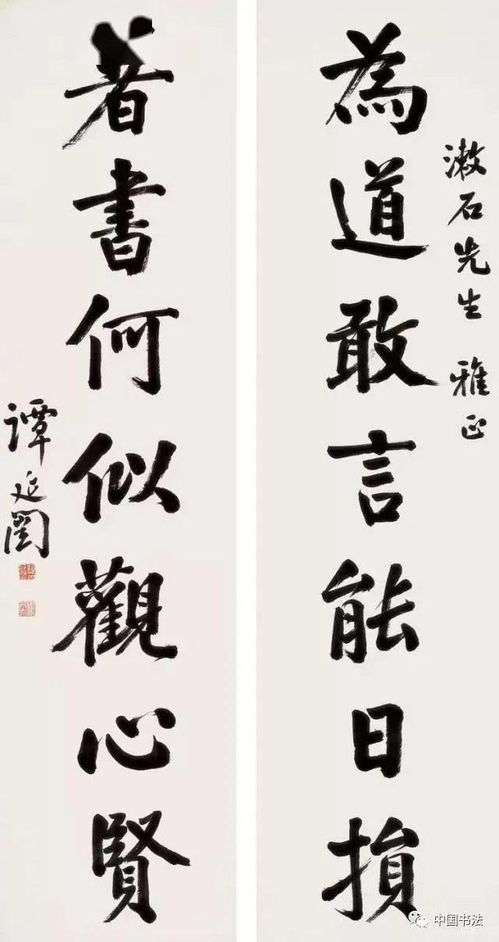 為道敢言能日損
漱石先生 雅正
著書何似觀心賢
譚延闓
中国书法